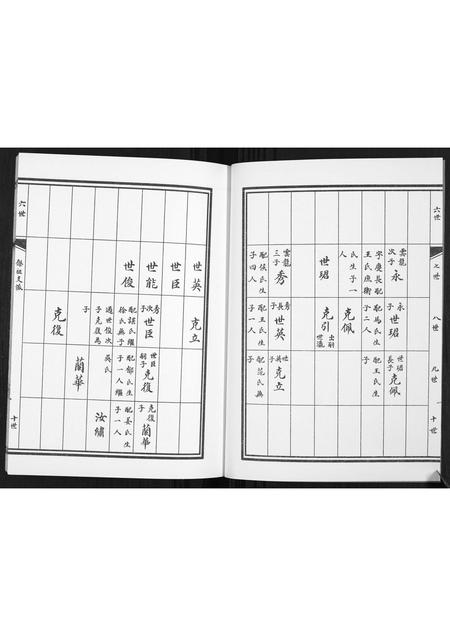 六世
七世
八世
九世
十世
雲龍次子永
字慶長配
王氏庶衛
氏生子一
人
世珺
雲龍三子秀
配侯氏生
子四人
永長子世珺
配馬氏生
子二人
克佩
克引
出嗣世瀛
秀長子世英
配王氏生
子一人
世珺長子克佩
配王氏生
子
世英子克立
配范氏無
子
六世
十世
世英
世臣
世能
世俊
克立
秀次子世臣
配誤氏繼
徐氏無子
過世俊次
子克復為
子
克復
世臣嗣子克復
配郁氏生
子一人繼
吳氏
蘭華
克復子蘭華
配姜氏生
子一人
汝繡